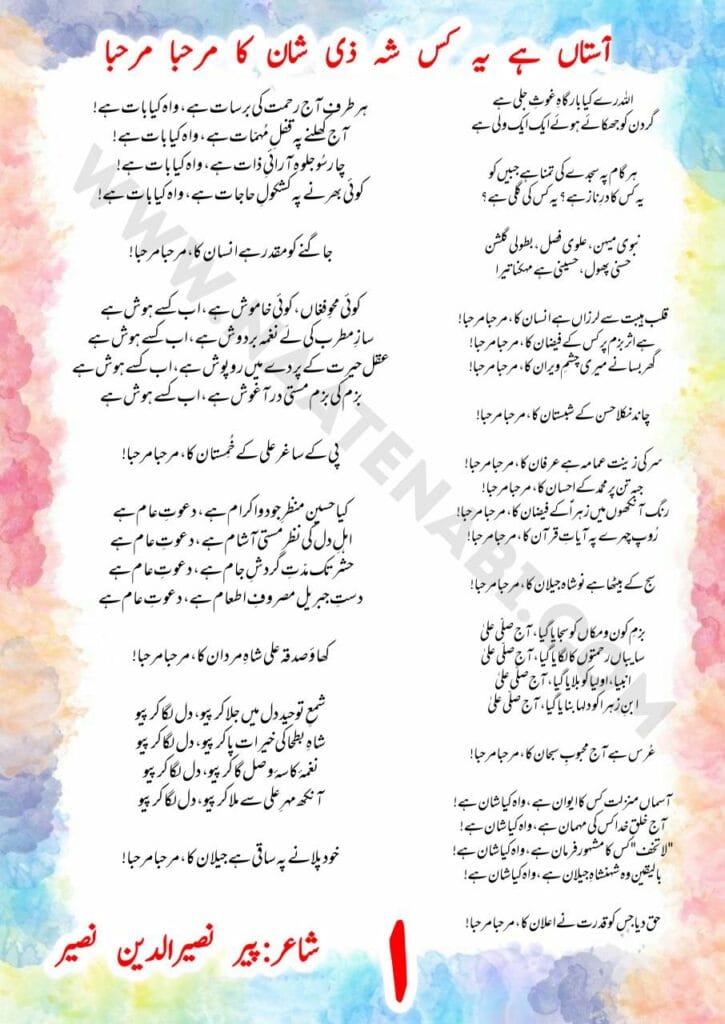 آستاں ہے یہ کس شہ ذی شان کا مرحبا مرحبا
اللہ رے کیا بارگاہِ غوثِ جلی ہے
گردن کو جھکائے ہوئے ایک ایک ولی ہے
ہر گام پہ سجدے کی تمنا ہے جبیں کو
یہ کس کا درِ ناز ہے؟ یہ کس کی گلی ہے؟
نبوی مینھ، علوی فصل، بطولی گلشن
حسنی پھول، حسینی ہے مہکنا تیرا
قلب ہیبت سے لرزاں ہے انسان کا، مرحبا مرحبا!
ہے اثر بزم پر کس کے فیضان کا، مرحبا مرحبا!
گھر بسانے میری چشمِ ویران کا، مرحبا مرحبا!
چاند نکلا حسن کے شبستان کا، مرحبا مرحبا!
سر کی زینت عمامہ ہے عرفان کا، مرحبا مرحبا!
جبہ تن پر محمد کے احسان کا، مرحبا مرحبا!
رنگ آنکھوں میں زہراؑ کے فیضان کا، مرحبا مرحبا!
رُوپ چہرے پہ آیاتِ قرآن کا، مرحبا مرحبا!
سج کے بیٹھا ہے نوشاہ جیلان کا، مرحبا مرحبا!
بزمِ کون و مکاں کو سجایا گیا، آج صلِّ علیٰ
سایباں رحمتوں کا لگایا گیا، آج صلِّ علیٰ
انبیا، اولیا کو بلایا گیا، آج صلِّ علیٰ
ابنِ زہرا کو دلہا بنایا گیا، آج صلِّ علیٰ
عُرس ہے آج محبوبِ سبحان کا، مرحبا مرحبا!
آسماں منزلت کس کا ایوان ہے، واہ کیا شان ہے!
آج خلقِ خدا کس کی مہمان ہے، واہ کیا شان ہے!
"لا تخف" کس کا مشہور فرمان ہے، واہ کیا شان ہے!
بالیقین وہ شہنشاہِ جیلان ہے، واہ کیا شان ہے!
حق دیا جس کو قدرت نے اعلان کا، مرحبا مرحبا!
ہر طرف آج رحمت کی برسات ہے، واہ کیا بات ہے!
آج کھلنے پہ قفلِ مُہمّات ہے، واہ کیا بات ہے!
چار سُو جلوہ آرائی ذات ہے، واہ کیا بات ہے!
کوئی بھرنے پہ کشکولِ حاجات ہے، واہ کیا بات ہے!
جاگنے کو مقدر ہے انسان کا، مرحبا مرحبا!
کوئی محوِ فغاں، کوئی خاموش ہے، اب کسے ہوش ہے
سازِ مطرب کی لے نغمہ بر دوش ہے، اب کسے ہوش ہے
عقل حیرت کے پردے میں روپوش ہے، اب کسے ہوش ہے
بزم کی بزم مستی در آغوش ہے، اب کسے ہوش ہے
پی کے ساغر علی کے خُمِستان کا، مرحبا مرحبا!
کیا حسین منظرِ جود و اکرام ہے، دعوتِ عام ہے
اہلِ دل کی نظر مستی آشام ہے، دعوتِ عام ہے
حشر تک مدّتِ گردشِ جام ہے، دعوتِ عام ہے
دستِ جبریل مصروفِ اطعام ہے، دعوتِ عام ہے
کھاؤ صدقہ علی شاہِ مردان کا، مرحبا مرحبا!
شمعِ توحید دل میں جلا کر پیو، دل لگا کر پیو
شاہِ بطحا کی خیرات پا کر پیو، دل لگا کر پیو
نغمۂ کاسۂ وصل گا کر پیو، دل لگا کر پیو
آنکھ مہرِ علی سے ملا کر پیو، دل لگا کر پیو
خود پلانے پہ ساقی ہے جیلان کا، مرحبا مرحبا!
شاعر: پیر نصیرالدین نصیر
۱
WWW.NAATENABI.COM